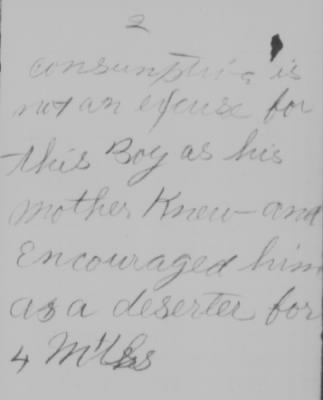 2
consumption is
not an excuse for
this Boy as his
mother Knew - and
Encouraged him
as a deserter for
4 Mths